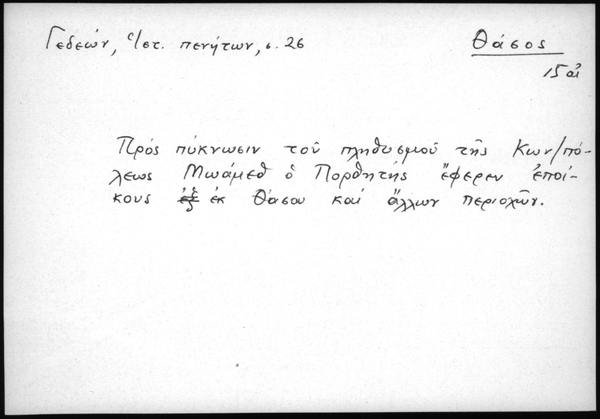 Γεδεών, Ἱστ. πενήτων, σ. 26
Θάσος
15 αἰ
Πρός πύκνωσιν τοῦ πληθυσμοῦ τῆς Κων/πό-
λεως Μωάμεθ ὁ Πορθητής ἔφερεν ἐποί-
κους ἐκ Θάσου καί ἄλλων περιοχῶν.